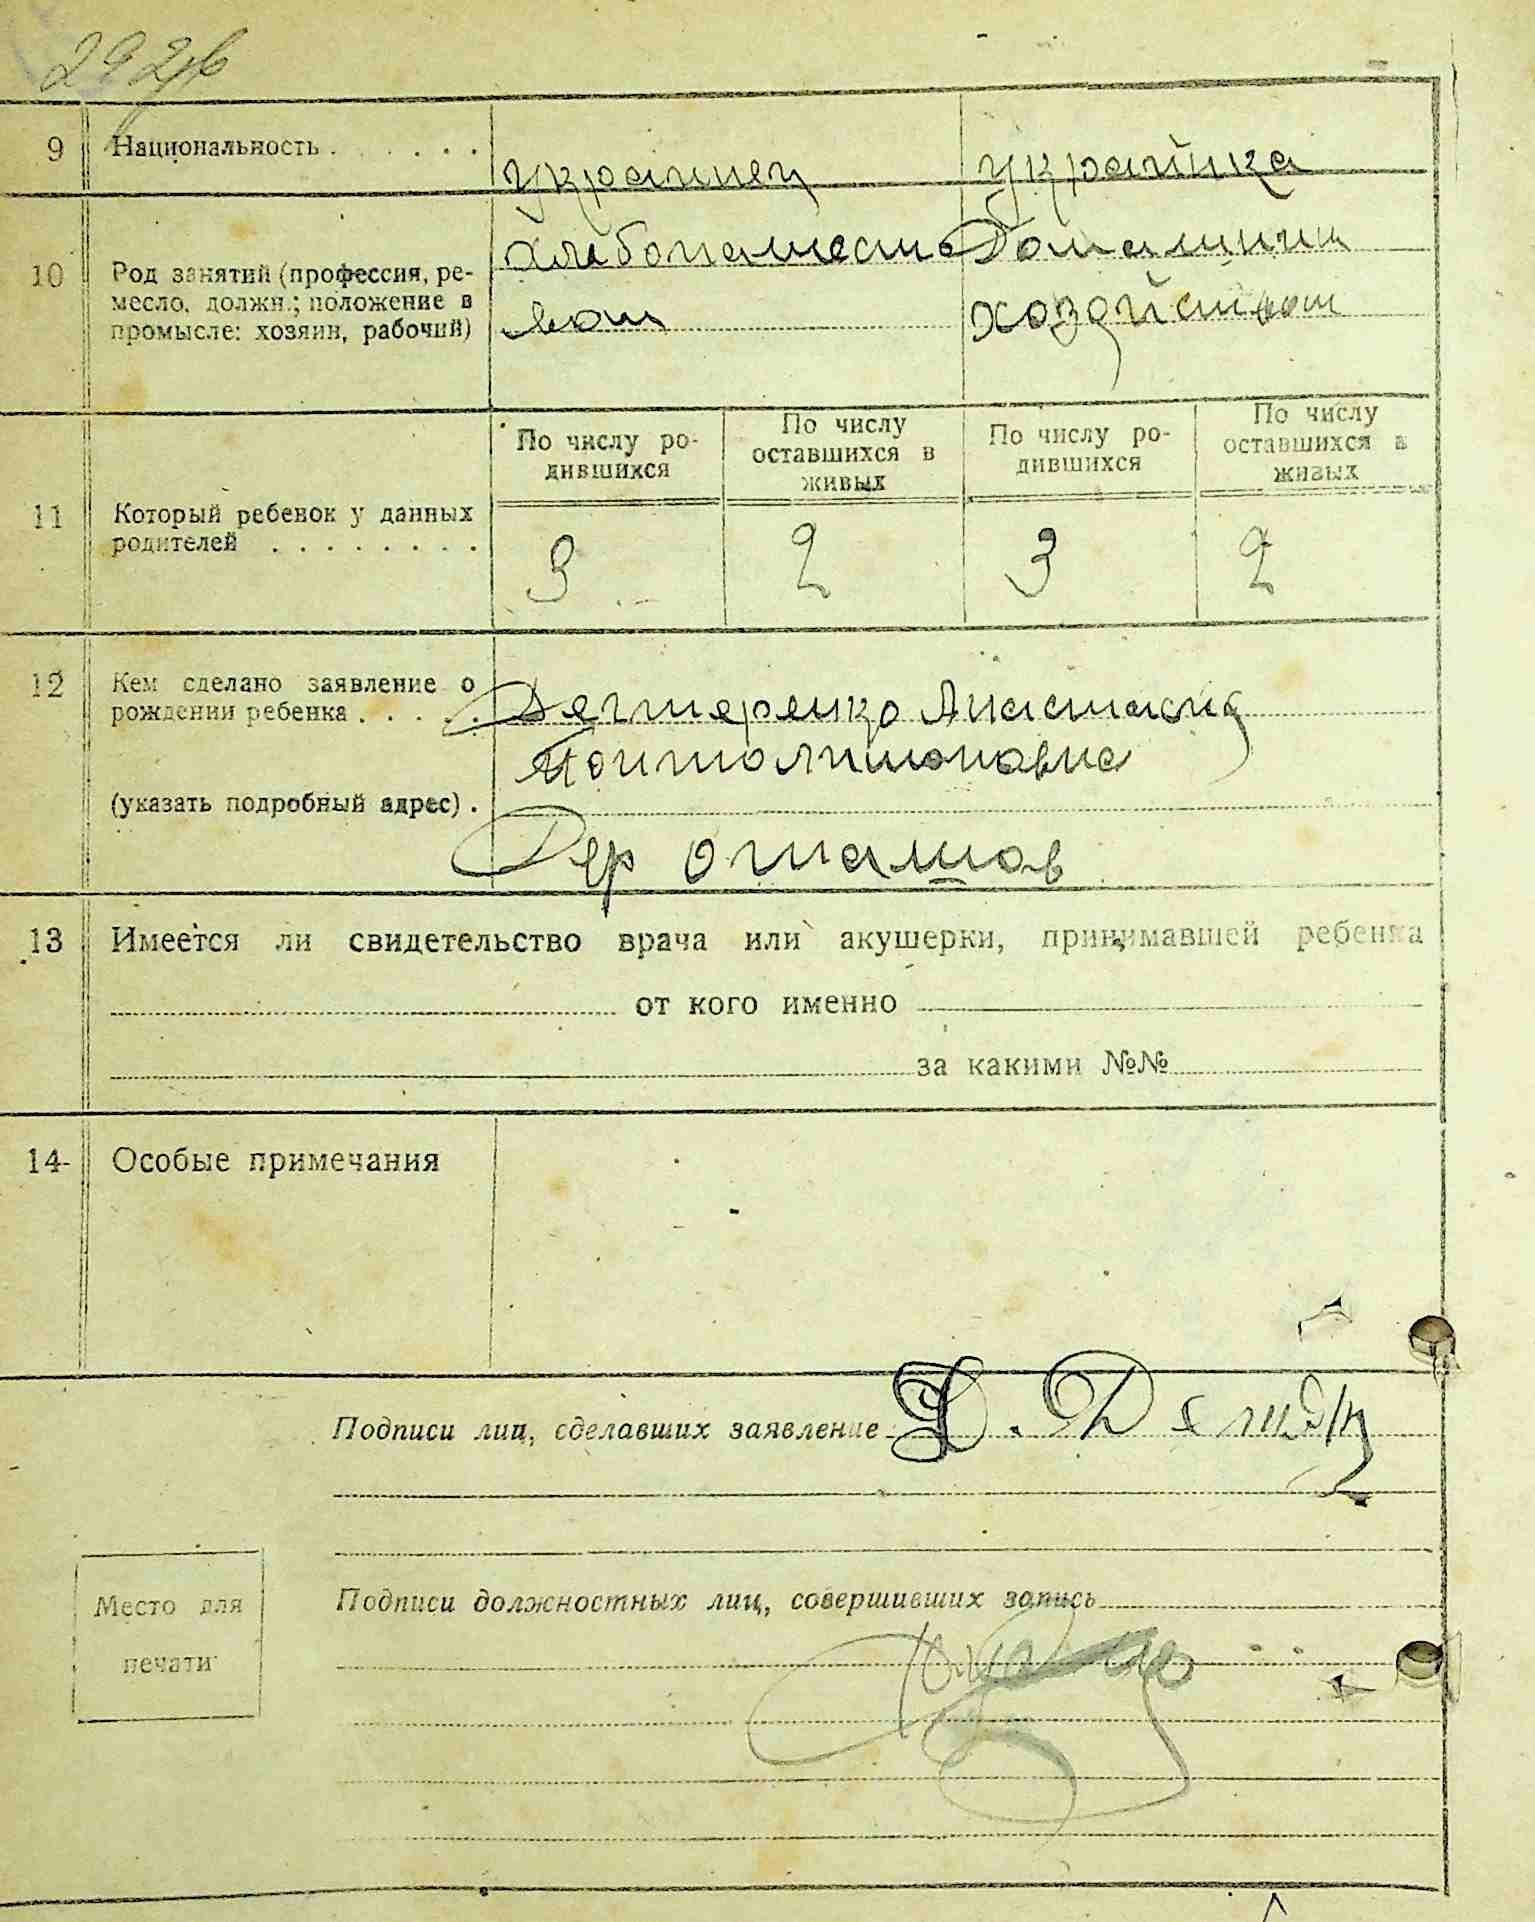 292об
9 Национальность . . . . . . украинец украинка
10 Род занятий (профессия, ре-
месло, должн.; положение в
промысле: хозяин, рабочий)
хлебопашест
вом
Домашним
хозяйством
11 Который ребенок у данных
родителей . . . . . . . .
По числу ро-
дившихся
По числу
оставшихся в
живых
По числу ро-
дившихся
По числу
оставшихся в
живых
3 2 3 2
12 Кем сделано заявление о
рождении ребенка . . . . .
(указать подробный адрес) .
Дегтеренко Анастасия
Дер
13 Имеется ли свидетельство врача или акушерки, принимавшей ребенка
от кого именно
за какими №№
14 Особые примечания
Подписи лиц, сделавших заявление:
Подписи должностных лиц, совершивших запись
Место для
печати